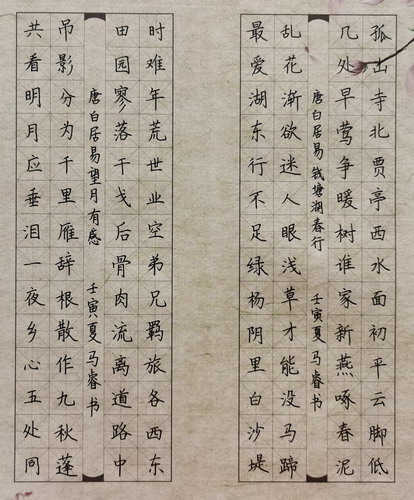 孤山寺北贾亭西水面初平云脚低
几处早莺争暖树谁家新燕啄春泥
唐白居易钱塘湖春行 壬寅夏马睿书
乱花渐欲迷人眼浅草才能没马蹄
最爱湖东行不足绿杨阴里白沙堤
时难年荒世业空弟兄羁旅各西东
田园寥落干戈后骨肉流离道路中
唐白居易望月有感 壬寅夏马睿书
吊影分为千里雁辞根散作九秋蓬
共看明月应垂泪一夜乡心五处同